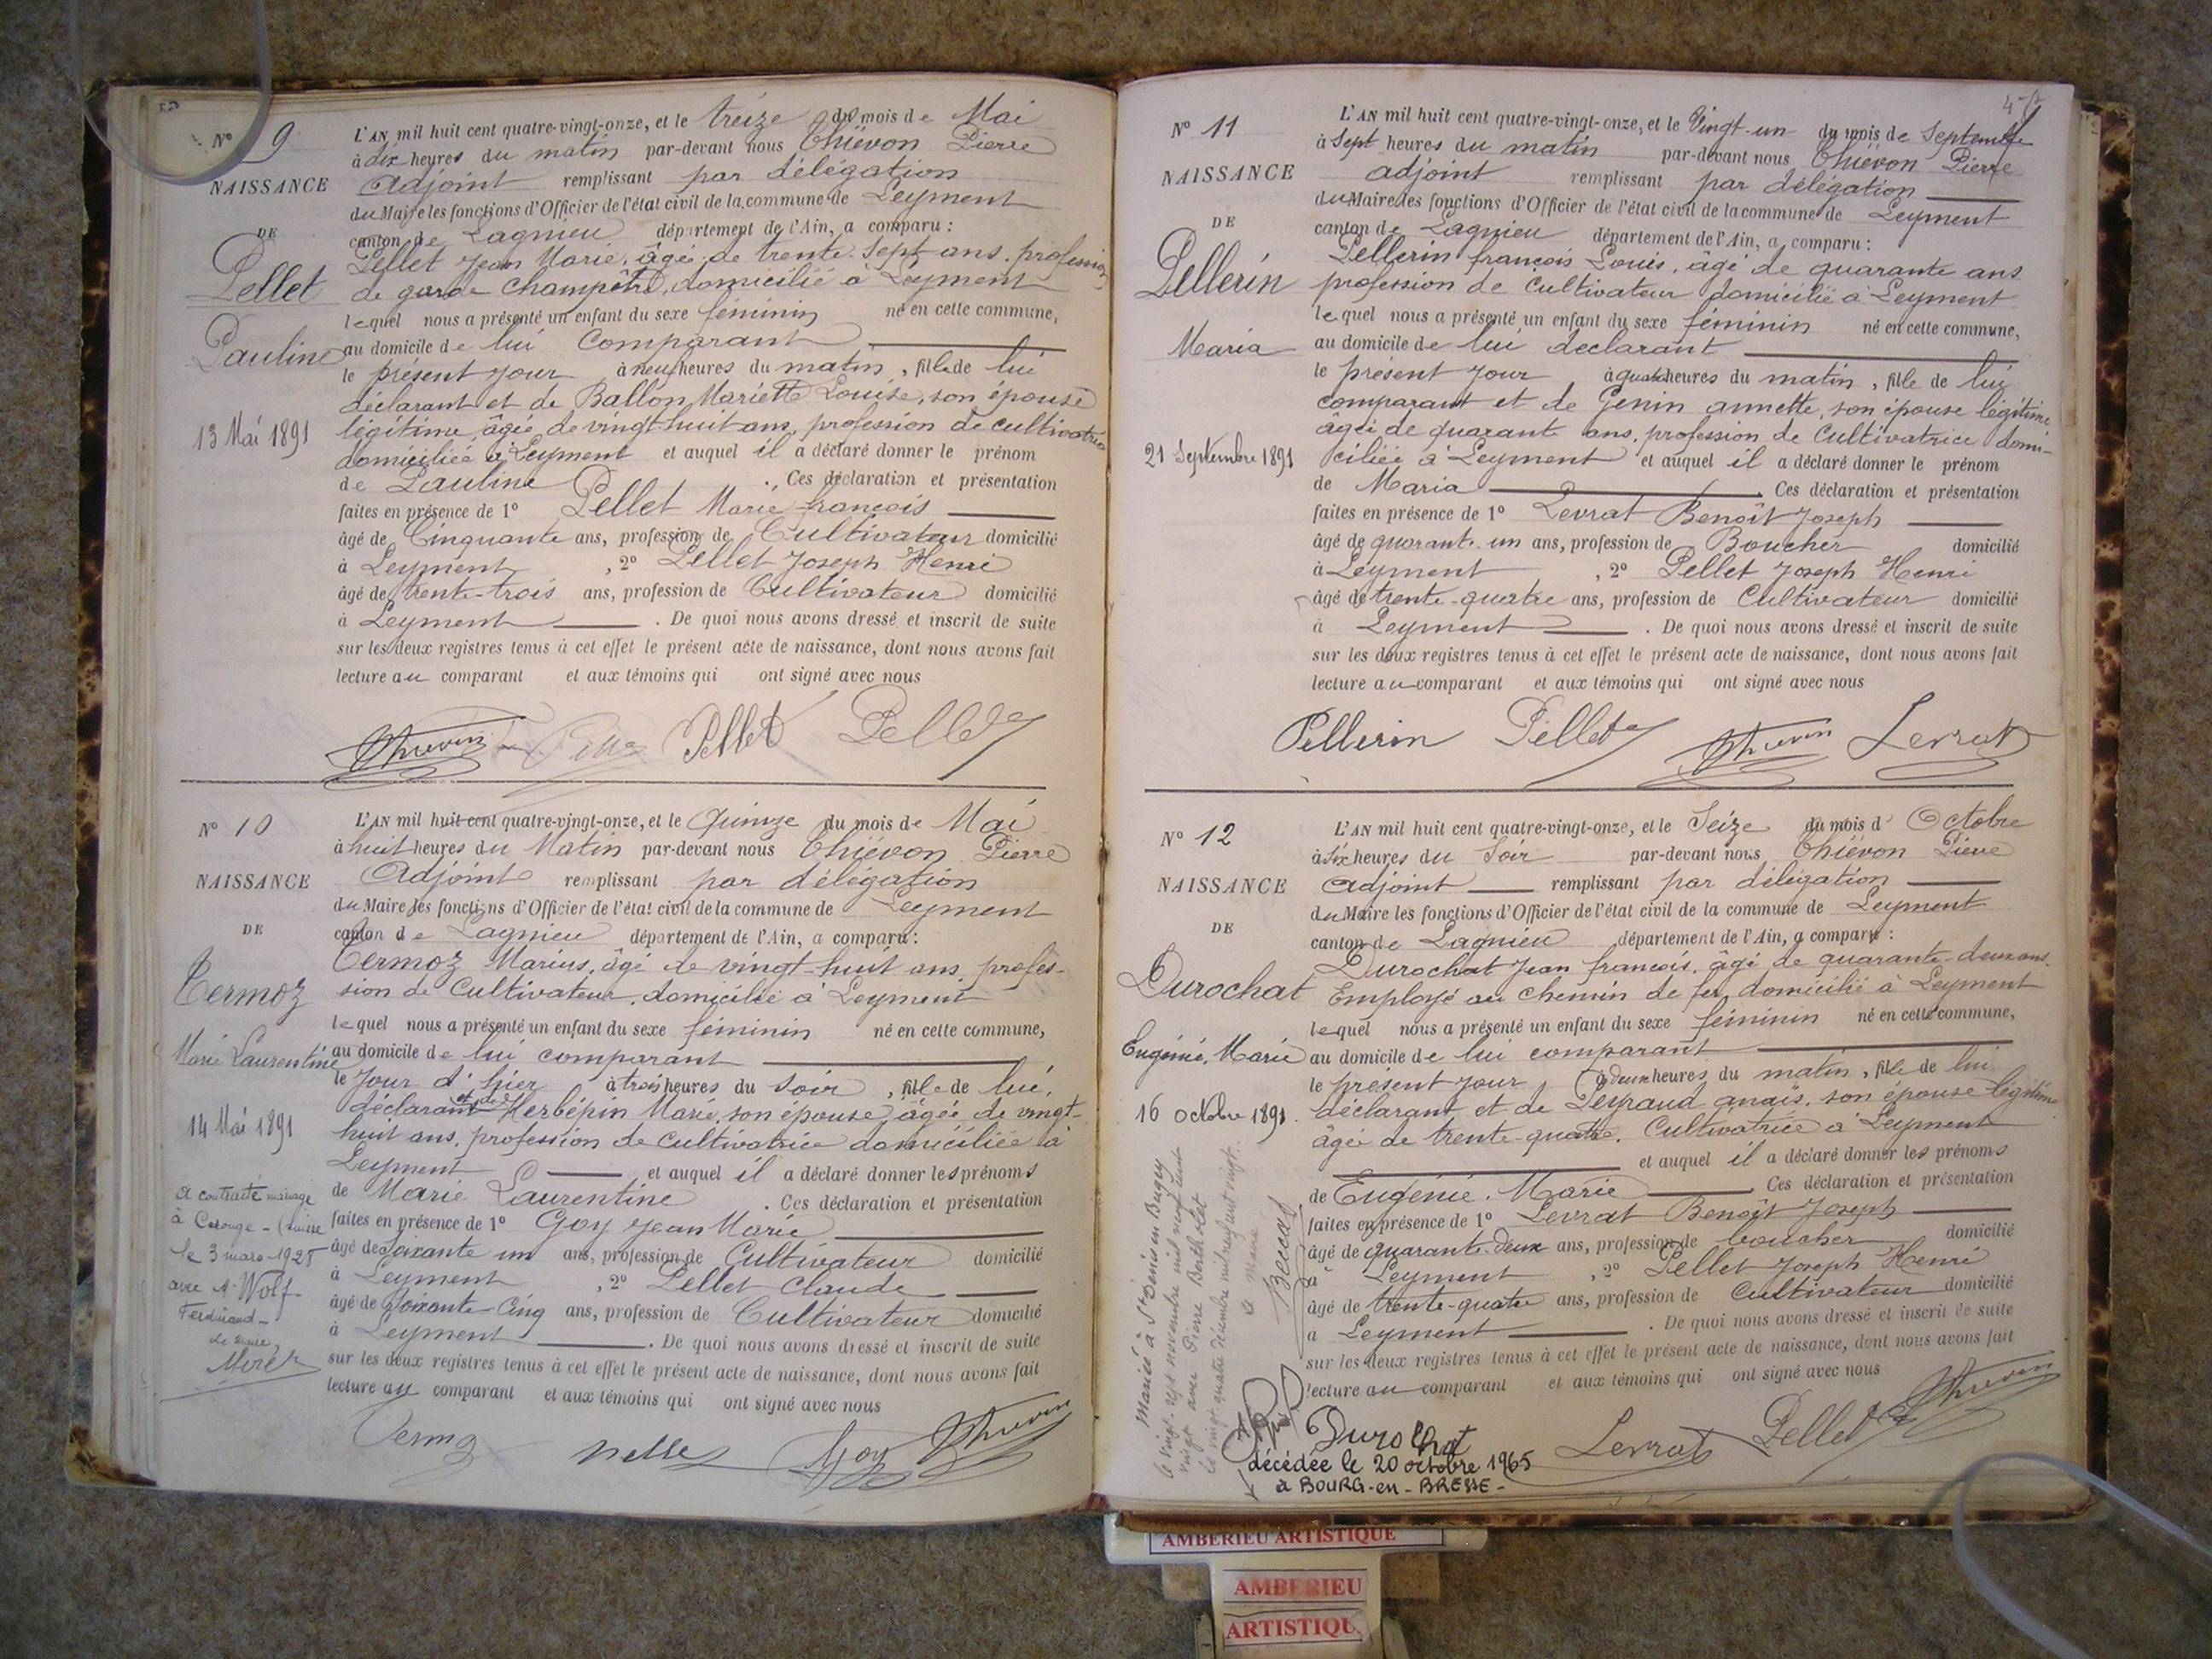 N° 9
NAISSANCE
DE
Pellet
Pauline
13 Mai 1891
L'AN mil huit cent quatre-vingt-onze, et le treize du mois de Mai
à dix heures du matin par-devant nous Thiévon Pierre
Adjoint remplissant par délégation
du Maire les fonctions d'Officier de l'état civil de la commune de Leyment
canton de Lagnieu département de l'Ain, a comparu :
Pellet Jean Marie, âgé de trente-sept ans, profession
de garde champêtre, domicilié à Leyment
lequel nous a présenté un enfant du sexe féminin né en cette commune,
au domicile de lui Comparant
le présent jour à neuf heures du matin, fille de lui
déclarant et de Ballon Mariette Louise, son épouse
légitime âgée de vingt-huit ans, profession de cultivatrice
domiciliée à Leyment et auquel il a déclaré donner le prénom
de Pauline. Ces déclaration et présentation
faites en présence de 1° Pellet Marie françois
âgé de Cinquante ans, profession de Cultivateur domicilié
à Leyment, 2° Pellet Joseph Henri
âgé de trente-trois ans, profession de Cultivateur domicilié
à Leyment. De quoi nous avons dressé et inscrit de suite
sur les deux registres tenus à cet effet le présent acte de naissance, dont nous avons fait
lecture au comparant et aux témoins qui ont signé avec nous
Thievon Pellet Pellet
N° 10
NAISSANCE
DE
Termoz
Marie Laurentine
14 Mai 1891
a contracté mariage
à Carouge - (Suisse
le 3 mars 1925
avec M. Wolf
Ferdinand -
Le maire,
L'AN mil huit cent quatre-vingt-onze, et le Quinze du mois de Mai
à huit heures du Matin par-devant nous Thiévon Pierre
Adjoint remplissant par délégation
du Maire les fonctions d'Officier de l'état civil de la commune de Leyment
canton de Lagnieu département de l'Ain, a comparu :
Termoz Marius, âgé de vingt-huit ans, profes-
sion de Cultivateur, domicilié à Leyment
lequel nous a présenté un enfant du sexe féminin né en cette commune,
au domicile de lui comparant
le Jour d'hier à trois heures du soir, fille de lui,
déclarant et de Herbépin Marie, son épouse, âgée de vingt-
huit ans, profession de cultivatrice domiciliée à
Leyment et auquel il a déclaré donner les prénoms
de Marie Laurentine. Ces déclaration et présentation
faites en présence de 1° Goy Jean Marie
âgé de Soixante un ans, profession de Cultivateur domicilié
à Leyment, 2° Pellet Claude
âgé de Soixante-Cinq ans, profession de Cultivateur domicilié
à Leyment. De quoi nous avons dressé et inscrit de suite
sur les deux registres tenus à cet effet le présent acte de naissance, dont nous avons fait
lecture au comparant et aux témoins qui ont signé avec nous
Goy Thievon
N° 11
NAISSANCE
DE
Pellerin
Maria
21 Septembre 1891
L'AN mil huit cent quatre-vingt-onze, et le Vingt-un du mois de Septembre
à Sept heures du matin par-devant nous Thiévon Pierre
adjoint remplissant par délégation
du Maire les fonctions d'Officier de l'état civil de la commune de Leyment
canton de Lagnieu département de l'Ain, a comparu :
Pellerin françois Louis, âgé de quarante ans
profession de Cultivateur domicilié à Leyment
lequel nous a présenté un enfant du sexe féminin né en cette commune,
au domicile de lui déclarant
le présent jour à quatre heures du matin, fille de lui
comparant et de Genin annette, son épouse légitime
âgée de quarante ans, profession de Cultivatrice domi-
ciliée à Leyment et auquel il a déclaré donner le prénom
de Maria. Ces déclaration et présentation
faites en présence de 1° Levrat Benoît Joseph
âgé de quarante-un ans, profession de Boucher domicilié
à Leyment, 2° Pellet Joseph Henri
âgé de trente-quatre ans, profession de Cultivateur domicilié
à Leyment. De quoi nous avons dressé et inscrit de suite
sur les deux registres tenus à cet effet le présent acte de naissance, dont nous avons fait
lecture au comparant et aux témoins qui ont signé avec nous
Pellerin Pellet Thievon Levrat
N° 12
NAISSANCE
DE
Durochat
Eugénie, Marie
16 octobre 1891.
Mariée à St Denis en Bugey
le vingt-sept novembre mil neuf cent
vingt avec Pierre Berthelet
le vingt-quatre décembre mil neuf cent vingt.
Le maire
L'AN mil huit cent quatre-vingt-onze, et le Seize du mois d'Octobre
à six heures du Soir par-devant nous Thiévon Pierre
adjoint remplissant par délégation
du Maire les fonctions d'Officier de l'état civil de la commune de Leyment
canton de Lagnieu département de l'Ain, a comparu :
Durochat Jean françois, âgé de quarante-deux ans,
Employé au chemin de fer, domicilié à Leyment
lequel nous a présenté un enfant du sexe féminin né en cette commune,
au domicile de lui comparant
le présent jour à deux heures du matin, fille de lui
déclarant et de Peyraud anaïs, son épouse légitime
âgée de trente-quatre, Cultivatrice à Leyment
et auquel il a déclaré donner les prénoms
de Eugénie, Marie. Ces déclaration et présentation
faites en présence de 1° Levrat Benoît Joseph
âgé de quarante-deux ans, profession de boucher domicilié
à Leyment, 2° Pellet Joseph Henri
âgé de trente-quatre ans, profession de Cultivateur domicilié
à Leyment. De quoi nous avons dressé et inscrit de suite
sur les deux registres tenus à cet effet le présent acte de naissance, dont nous avons fait
lecture au comparant et aux témoins qui ont signé avec nous
Durochat Levrat Pellet Thievon
décédée le 20 octobre 1965
à BOURG-en-BRESSE-
AMBERIEU ARTISTIQUE
AMBERIEU
ARTISTIQU